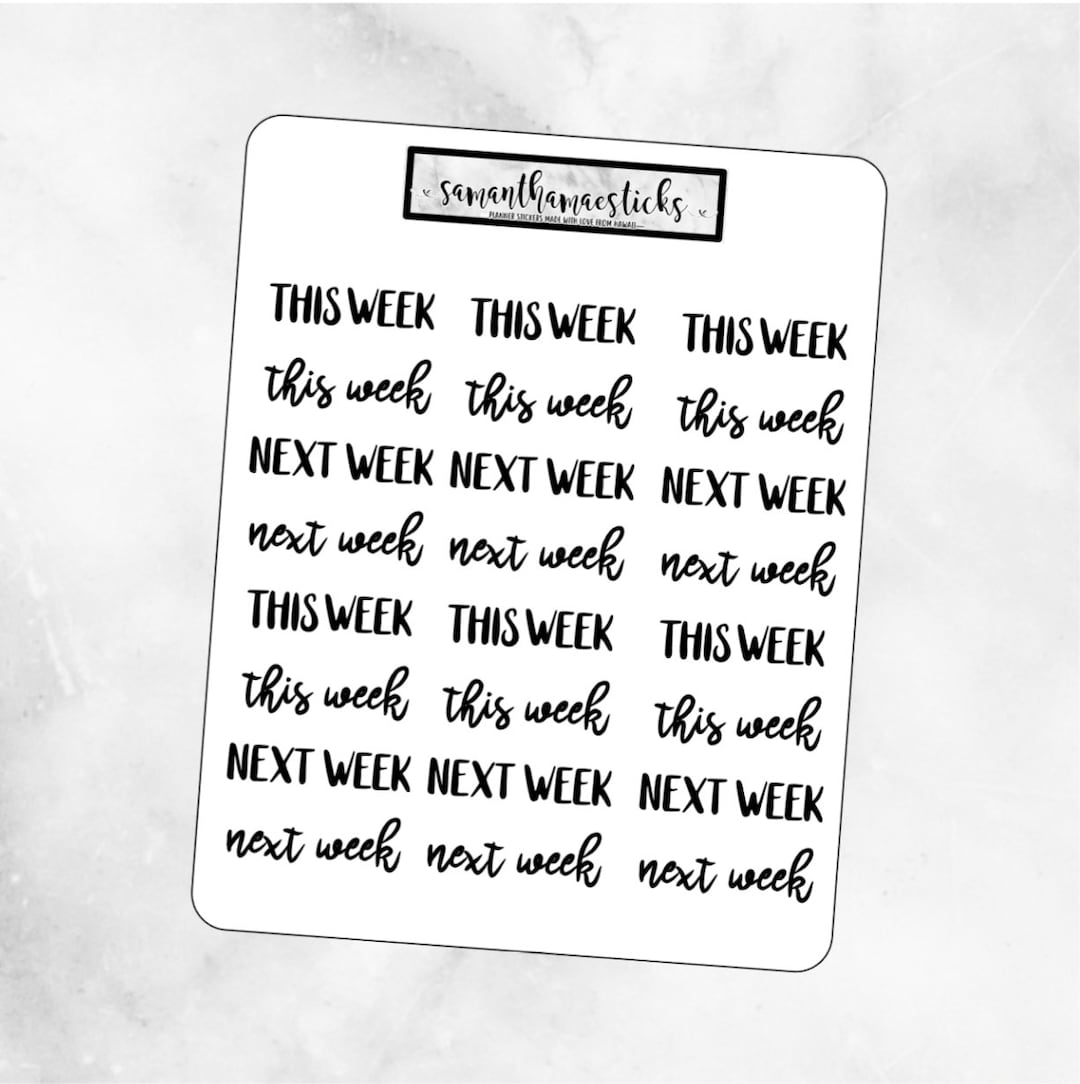 samanthamaesticks
PLANNER STICKERS MADE WITH LOVE FROM HAWAII
THIS WEEK THIS WEEK THIS WEEK
this week this week this week
NEXT WEEK NEXT WEEK NEXT WEEK
next week next week next week
THIS WEEK THIS WEEK THIS WEEK
this week this week this week
NEXT WEEK NEXT WEEK NEXT WEEK
next week next week next week